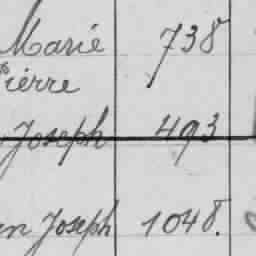 Marie 738
Pierre
Joseph 493
Joseph 1048.